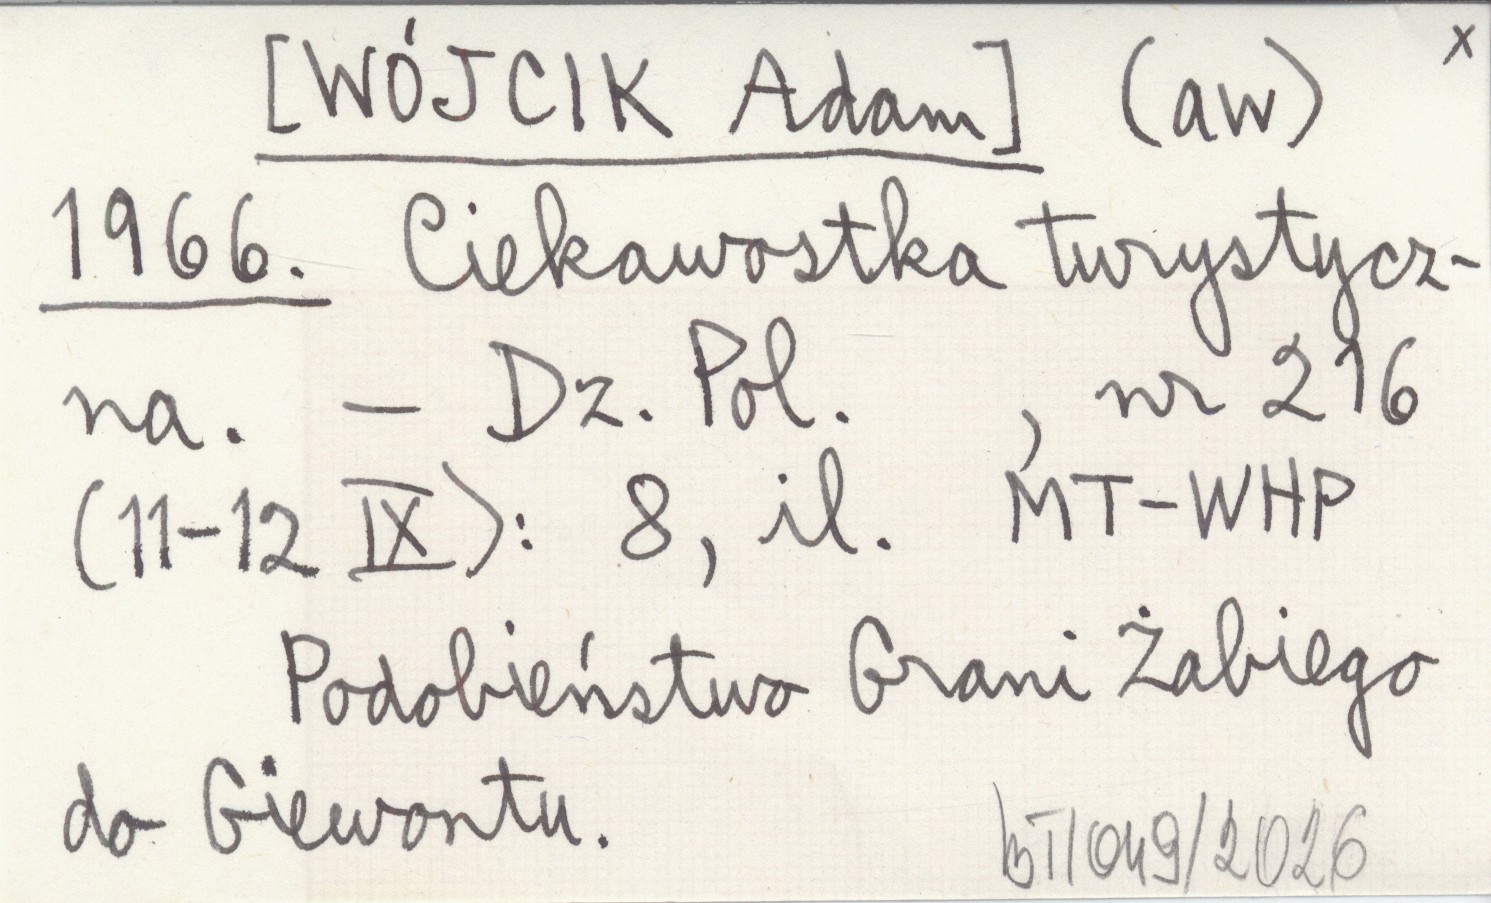 [WÓJCIK Adam] (aw) x
1966. Ciekawostka turystycz-
na. — Dz. Pol. , nr 216
(11-12 IX): 8, il. MT-WHP
Podobieństwo Grani Żabiego
do Giewontu.
BT/049/2026